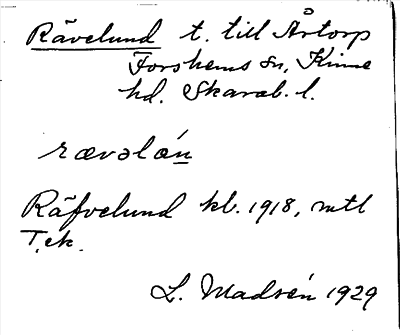 Rävelund t. till Årtorp
Forshems sn, Kinne
hd. Skarab. l.
rævəlún
Räfvelund kl. 1918, mtl
T.ek.
L. Madsén 1929